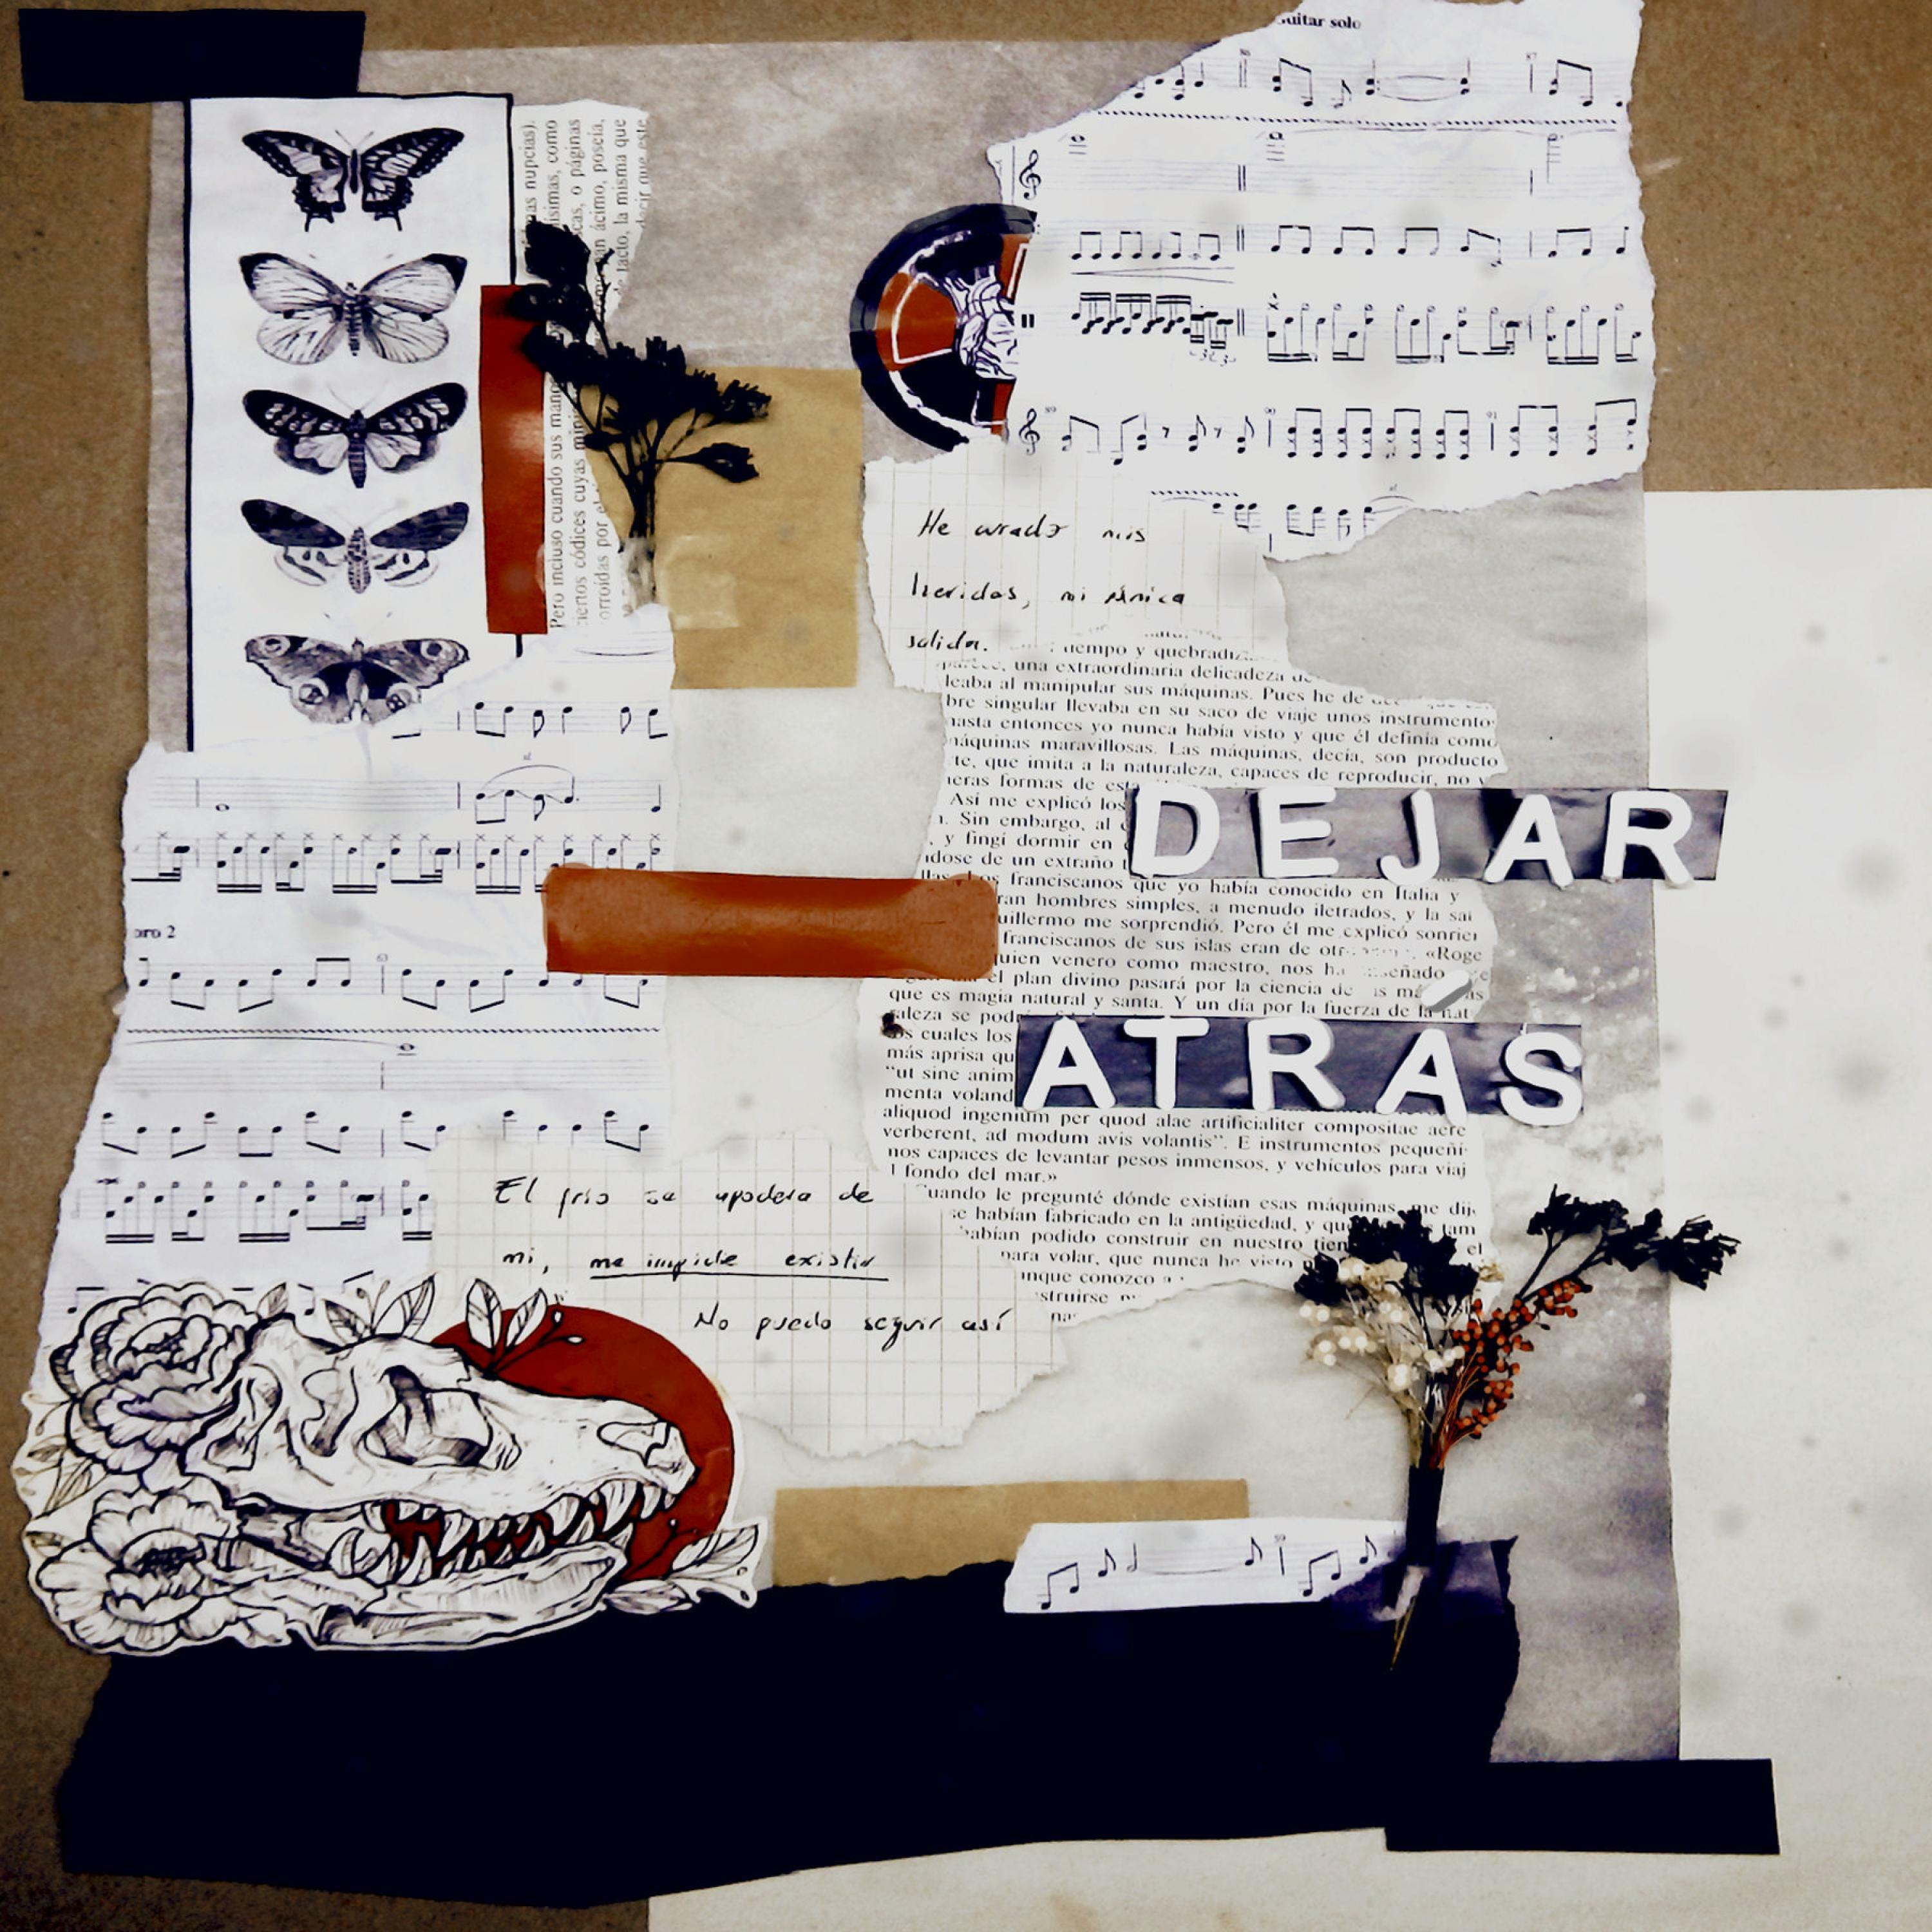 uitar solo
nas nupcias).
ísimas, como
cas, o páginas
an ácimo, poseía,
tacto, la misma que
decir que este
Pero incluso cuando sus mano
ciertos códices cuyas
orroídas por el
He curado mis
heridas, mi única
salida.
tiempo y quebradiz
una extraordinaria delicadeza
leaba al manipular sus máquinas. Pues he de
bre singular llevaba en su saco de viaje unos instrumento
hasta entonces yo nunca había visto y que él definía como
máquinas maravillosas. Las máquinas, decía, son producto
te, que imita a la naturaleza, capaces de reproducir, no
neras formas de est
Así me explicó los
n. Sin embargo, al
, y fingí dormir en
ndose de un extraño
DEJAR
llas. Los franciscanos que yo había conocido en Italia y
ran hombres simples, a menudo iletrados, y la
uillermo me sorprendió. Pero él me explicó sonrien
franciscanos de sus islas eran de «Roge
uien venero como maestro, nos ha
el plan divino pasará por la ciencia de
que es magia natural y santa. Y un día por la fuerza de la nat
raleza se podr
os cuales los
más aprisa qu
"ut sine anim
menta voland
ATRÁS
aliquod ingenium per quod alae artificialiter compositae aere
verberent, ad modum avis volantis". E instrumentos pequeñí-
nos capaces de levantar pesos inmensos, y vehículos para viaj
l fondo del mar.»
Cuando le pregunté dónde existían esas máquinas, me dij
se habían fabricado en la antigüedad, y que tam
habían podido construir en nuestro tiem el
para volar, que nunca he visto
unque conozco a
struirse
oro 2
El frío se apodera de
mi, me impide existir
No puedo seguir así